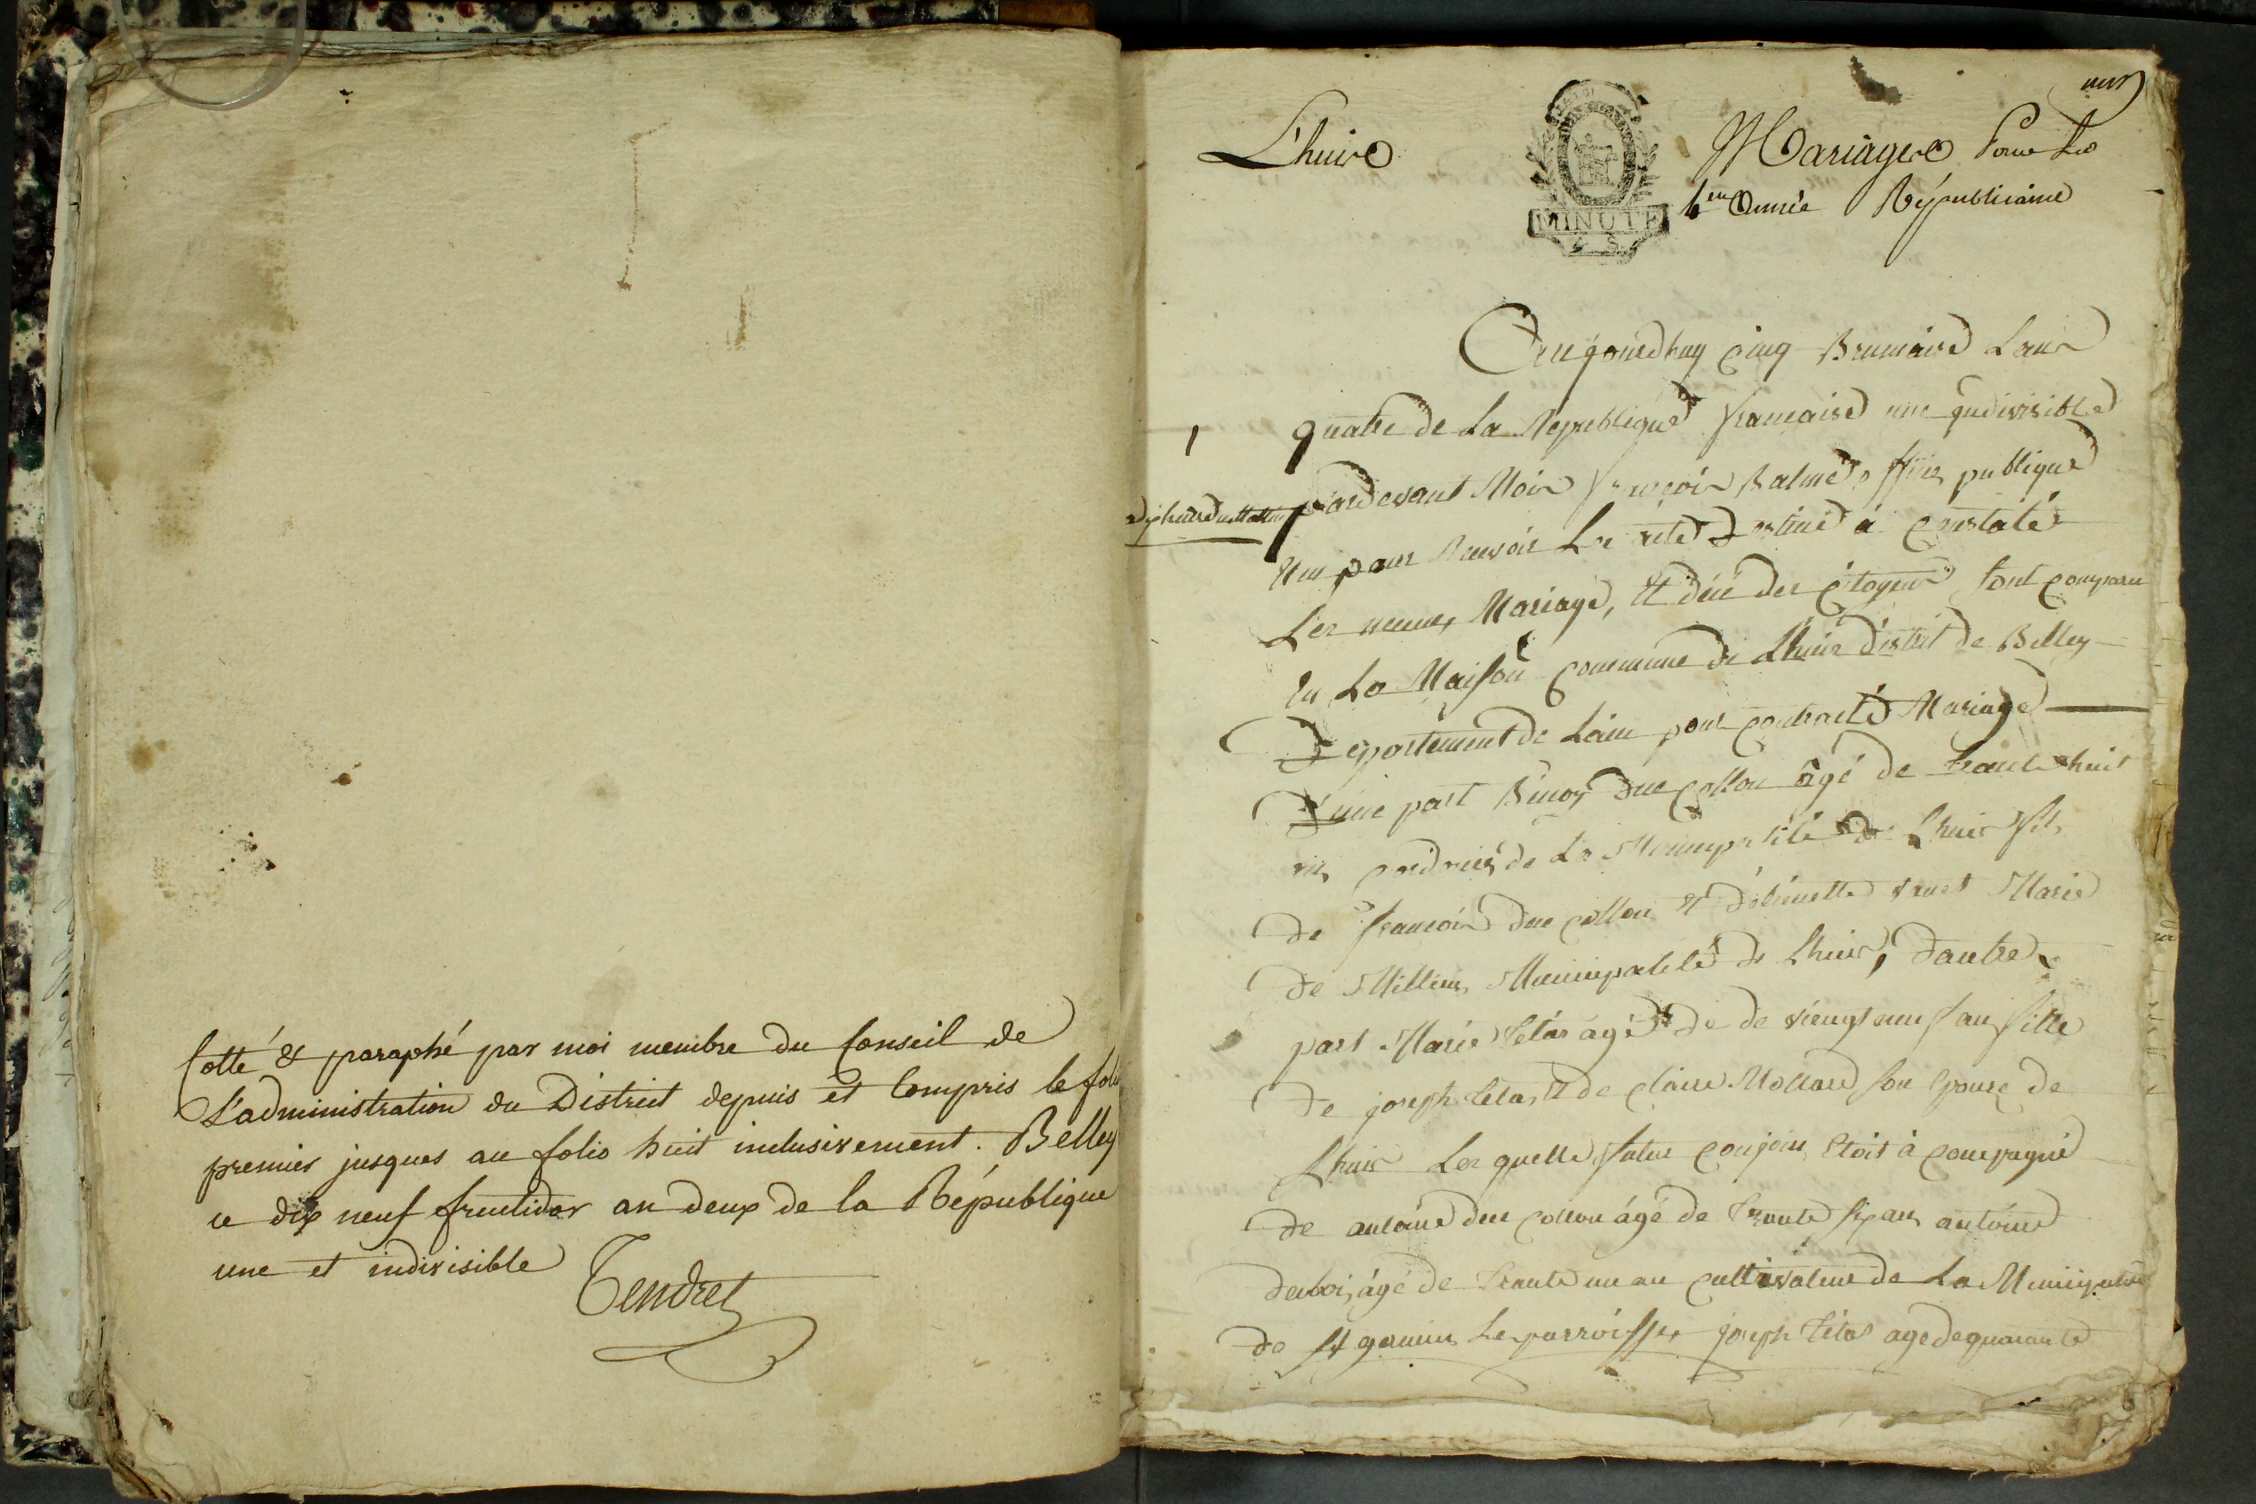 Cotté & paraphé par moi membre du Conseil de
L'administration du District depuis et Compris le folio
premier jusques au folio huit inclusivement. Belley
ce dix neuf fructidor an deux de la République
une et indivisible
Tendret
un
Lhuire
MINUTE
Mariages Pour La
4me Année Républicaine
1
Aujourdhuy Cinq Brumaire Lan
quatre de La Republique francaise une indivisible
pardevant Moi françois Balme officier publique
pour Recevoir Les acte Destiné à Constaté
Les Mariage, et décé des Citoyens sont comparu
En La Maison Commune de Lhuis District de Belley
Departement de Lain pour contracté Mariage
D'une part Duccollon âgé de trante huit
ans de La Municipalité de Lhuis fils
de francois duccollon et Marie
de Millieu Municipalité de Lhuis, dautre
part Marie âgé de de viengt ans fille
de joseph et de Claire Mollard son Epouse de
Lhuis Les quelle futur conjoin Etoit à compagné
de antoine duccollon âgé de Trante six ans antoine
dubois âgé de Trante un an Cultivateur de La Municipalité
de St germain Les parroisses joseph age de quarante